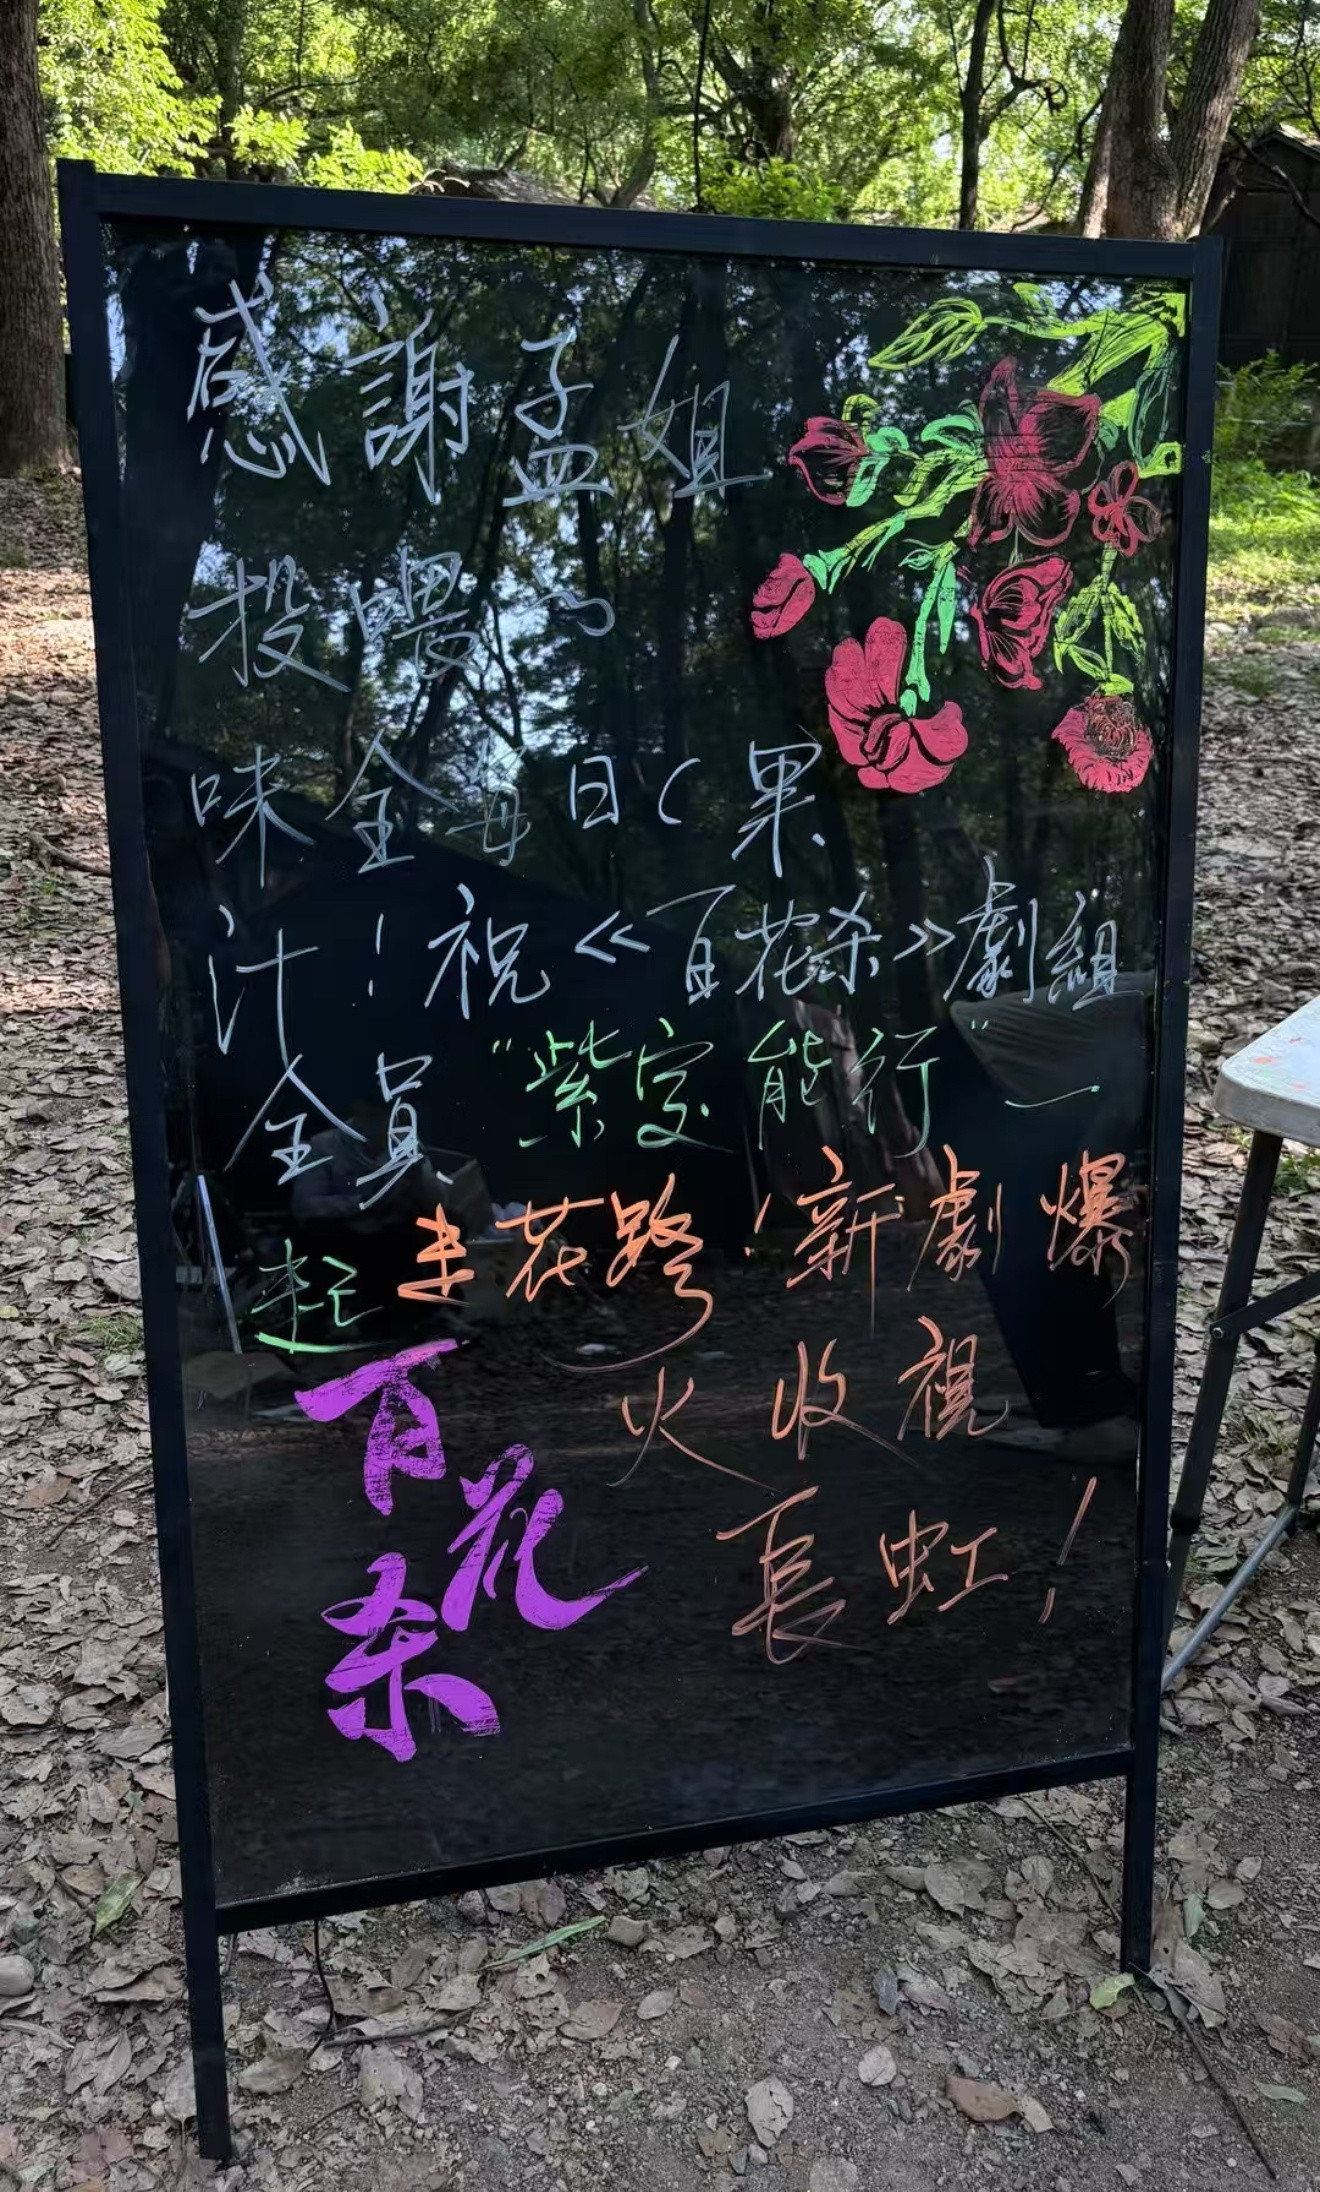 感謝孟姐
投喂~
味全每日C果
汁！祝《百花杀》劇組
全員“紫定能行”一
起走花路！新劇爆
火收視
長虹！
百花
杀